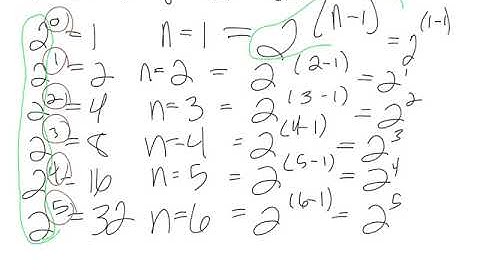 2⁰ = 1 n = 1 = 2^(n-1) = 2^(1-1)
2¹ = 2 n = 2 = 2^(2-1) = 2¹
2² = 4 n = 3 = 2^(3-1) = 2²
2³ = 8 n = 4 = 2^(4-1) = 2³
2⁴ = 16 n = 5 = 2^(5-1) = 2⁴
2⁵ = 32 n = 6 = 2^(6-1) = 2⁵